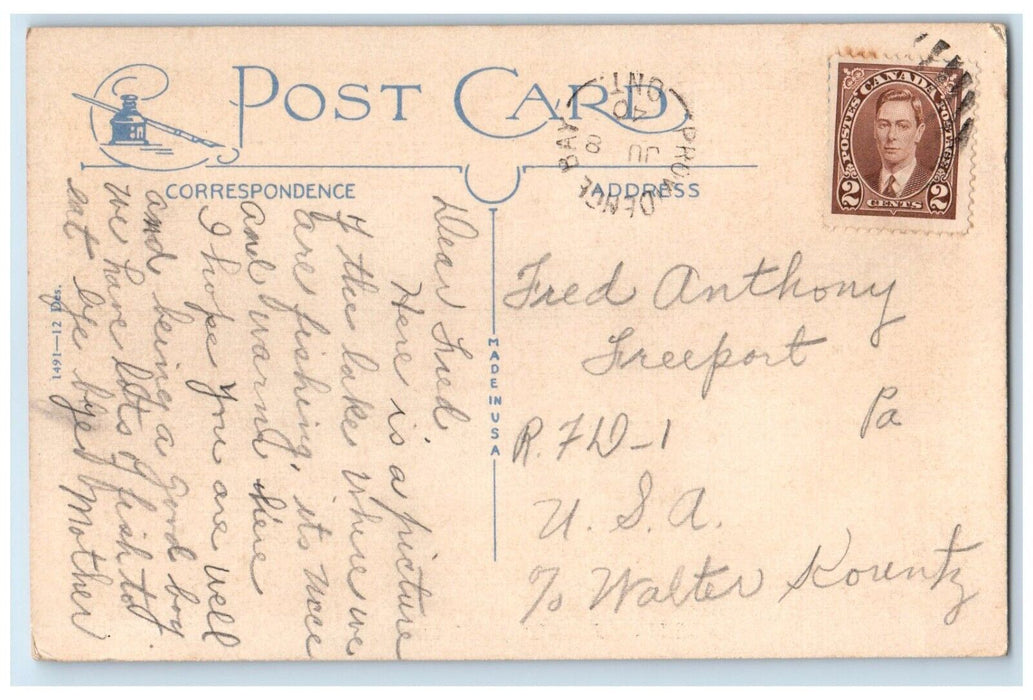 POST CARD
CORRESPONDENCE
ADDRESS
PROVIDENCE BAY
ONT.
JU 8
40
POSTES CANADA POSTAGE
2 CENTS 2
Dear Fred,
Here is a picture
of the lake where we
are fishing, its nice
and warm here
I hope you are well
and being a good boy
we have lots of fish to
eat bye bye Mother
1491—12 Des.
MADE IN USA
Fred Anthony
Freeport
Pa
R.F.D-1
U. S. A.
c/o Walter Kountz